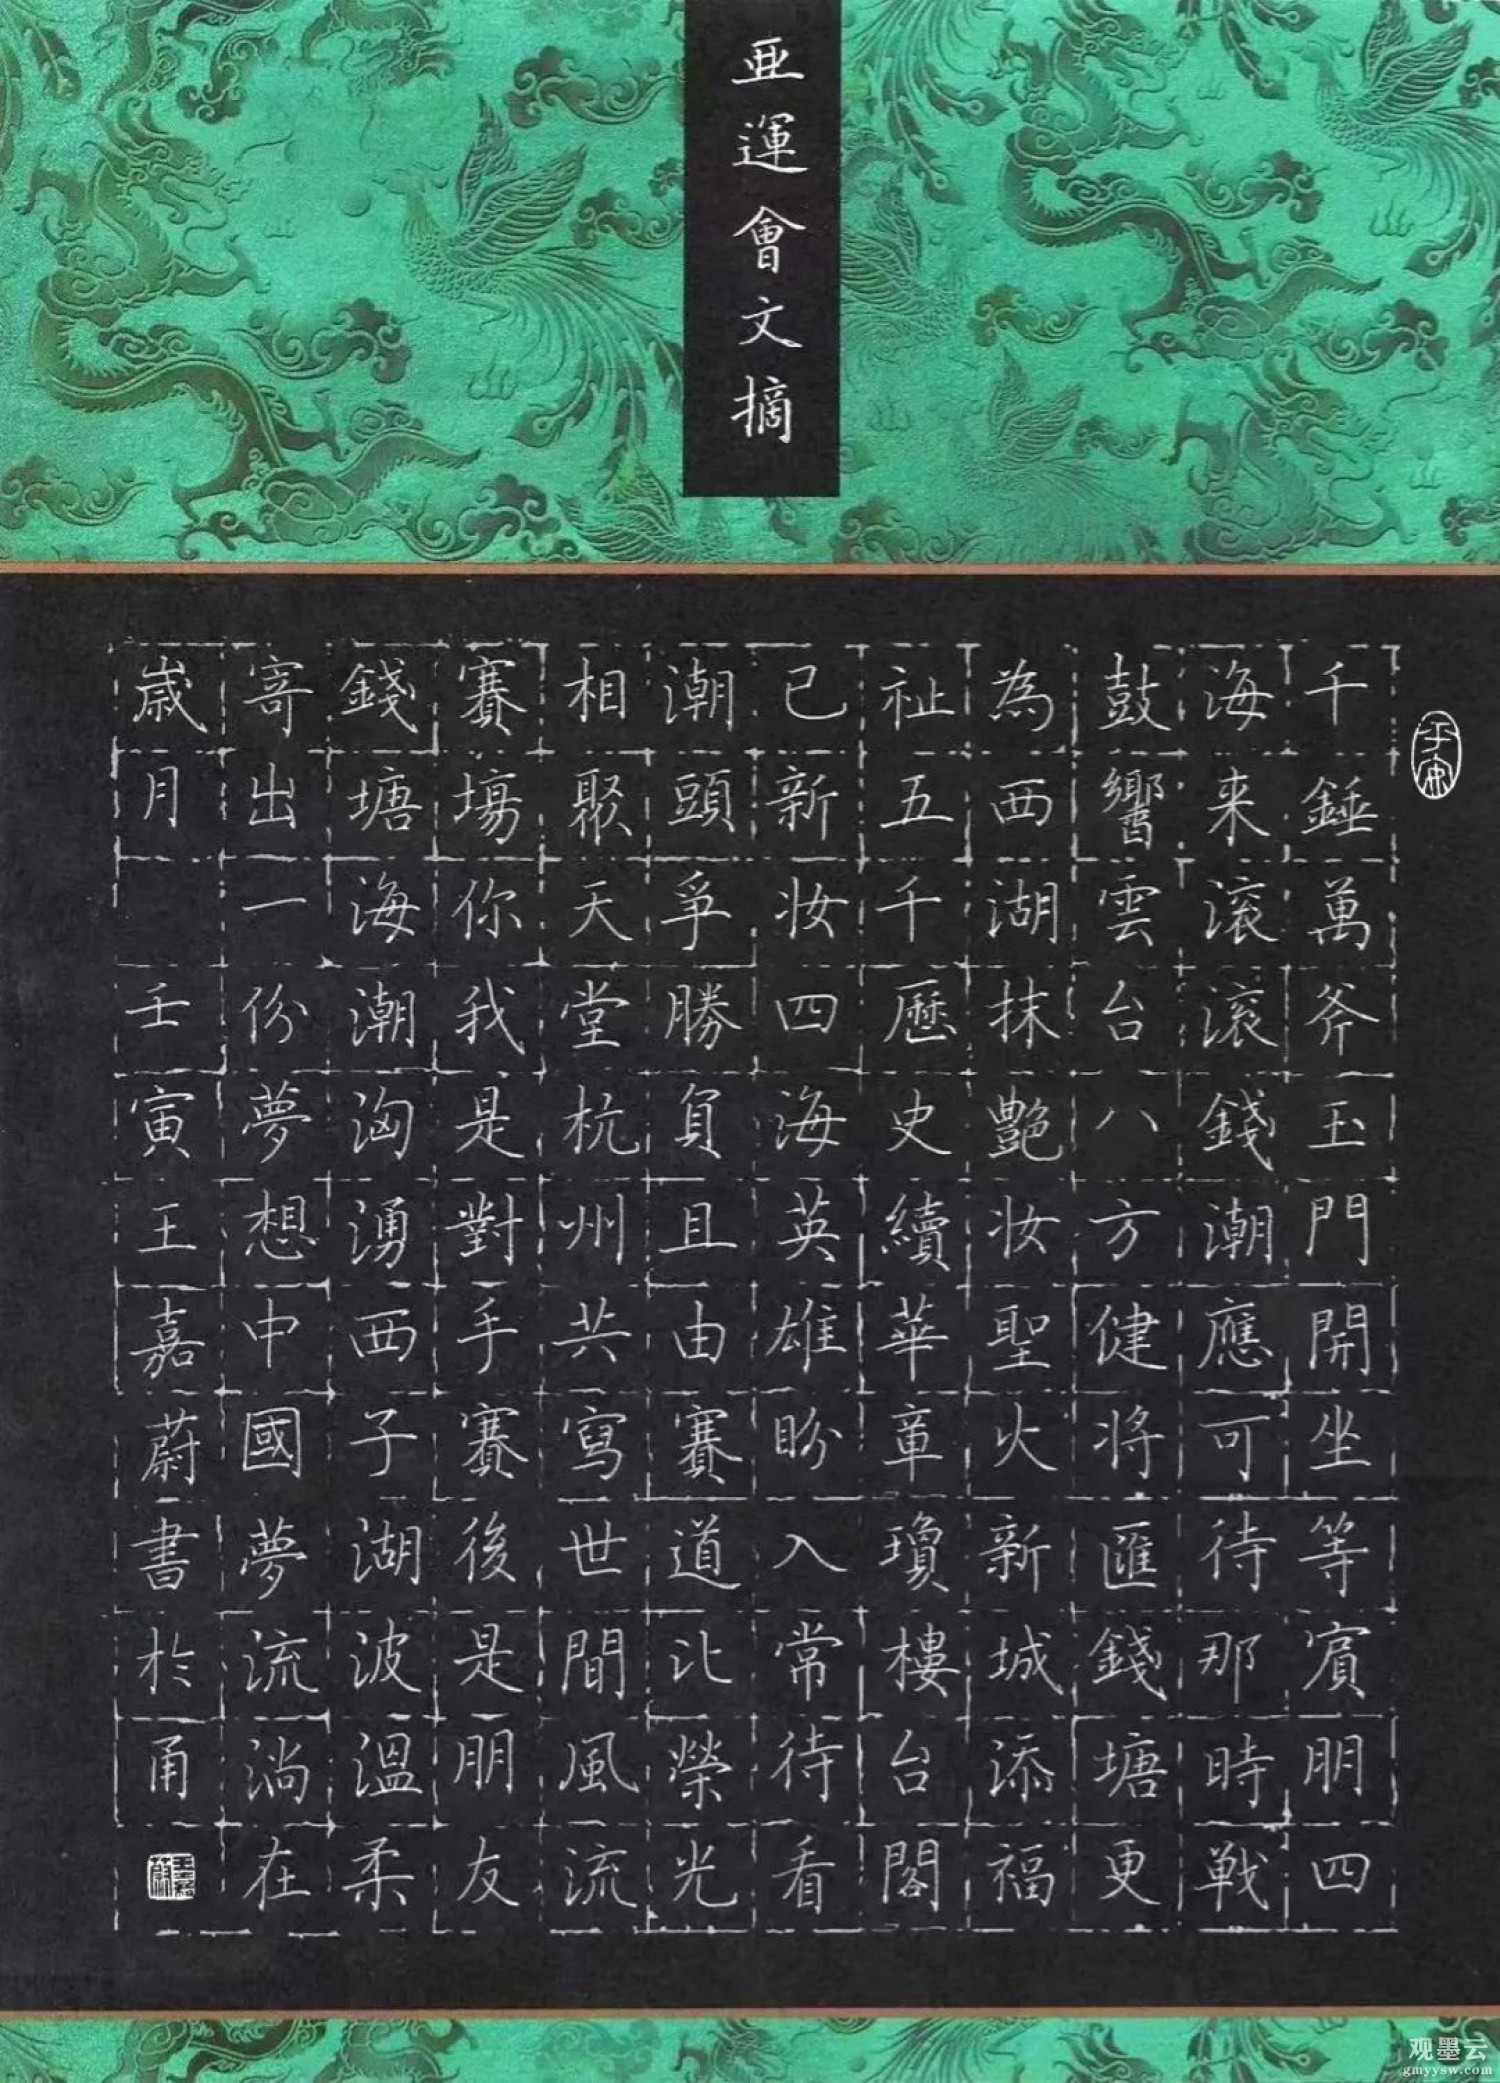 亞運會文摘
千錘萬斧玉門開坐等賓朋四
海来滚滚錢潮應可待那時戰
鼓響雲台八方健将匯錢塘更
為西湖抹艷妝聖火新城添福
祉五千歷史續華章瓊樓台閣
已新妝四海英雄盼入常待看
潮頭爭勝負且由賽道比榮光
相聚天堂杭州共寫世間風流
賽場你我是對手賽後是朋友
錢塘海潮洶湧西子湖波溫柔
寄出一份夢想中國夢流淌在
歲月 壬寅王嘉蔚書於甬
观墨云
gmyysw.com